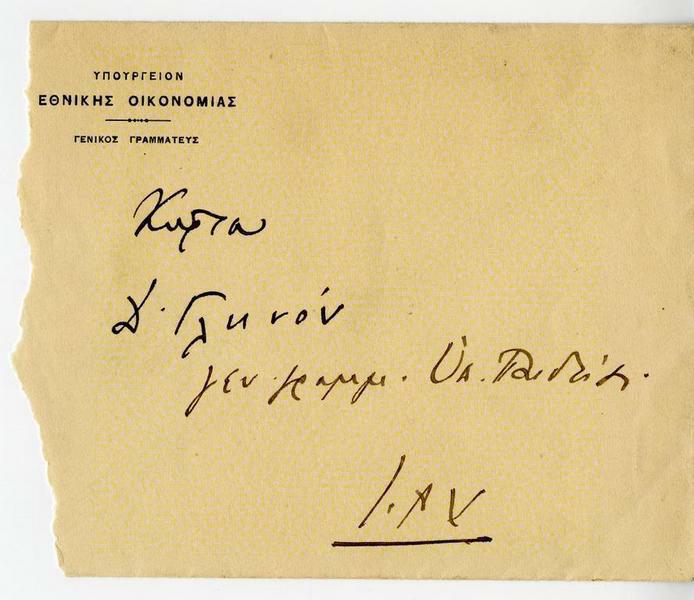 ΥΠΟΥΡΓΕΙΟΝ
ΕΘΝΙΚΗΣ ΟΙΚΟΝΟΜΙΑΣ
ΓΕΝΙΚΟΣ ΓΡΑΜΜΑΤΕΥΣ
Κύριον
Δ. Γληνόν
γεν. γραμμ. Ὑπ. Παιδείας.